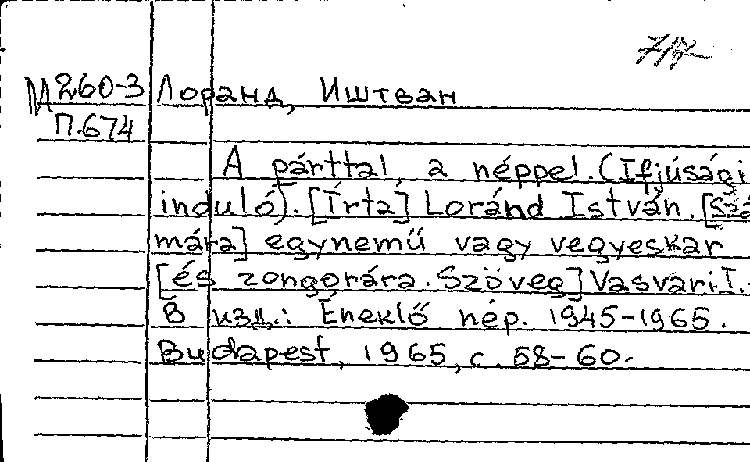 М260-3 Лоранд, Иштван
П.674
A párttal, a néppel. (Ifjúsági
induló). [Írta] Loránd István. [Szá
mára] egynemű vagy vegyeskar
[és zongorára. Szöveg] Vasvári I. -
В изд.: Éneklő nép. 1945-1965.
Budapest, 1965, с. 58-60.